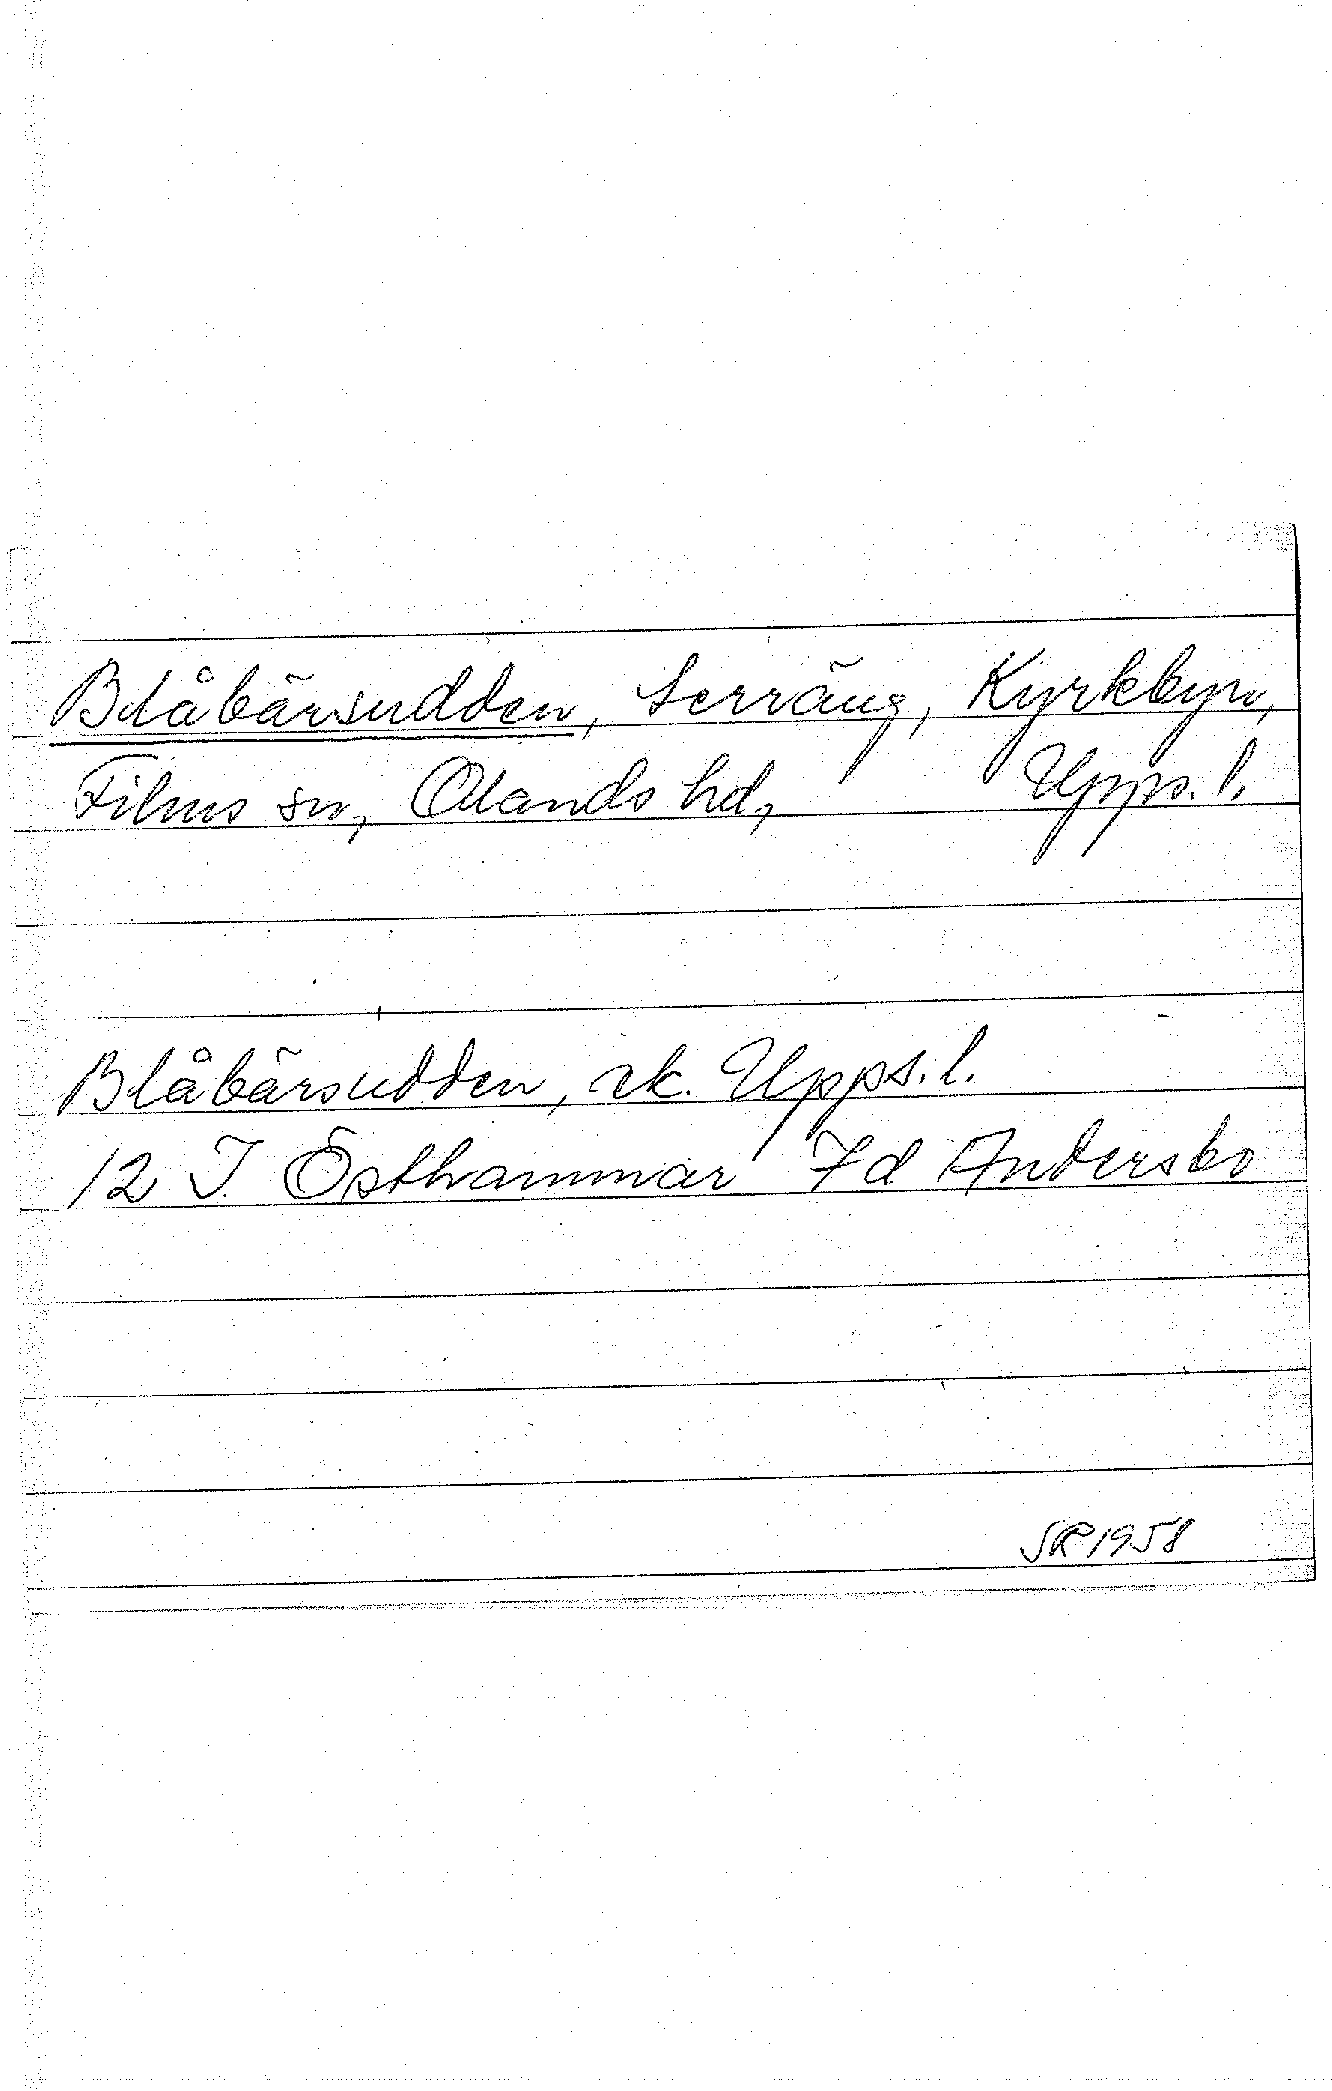 Blåbärsudden, terräng, Kyrkbyn,
Films sn, Olands hd, Upps. l.
Blåbärsudden, ek. Upps. l.
12 I. Östhammar 7d Andersbo
SR 1958